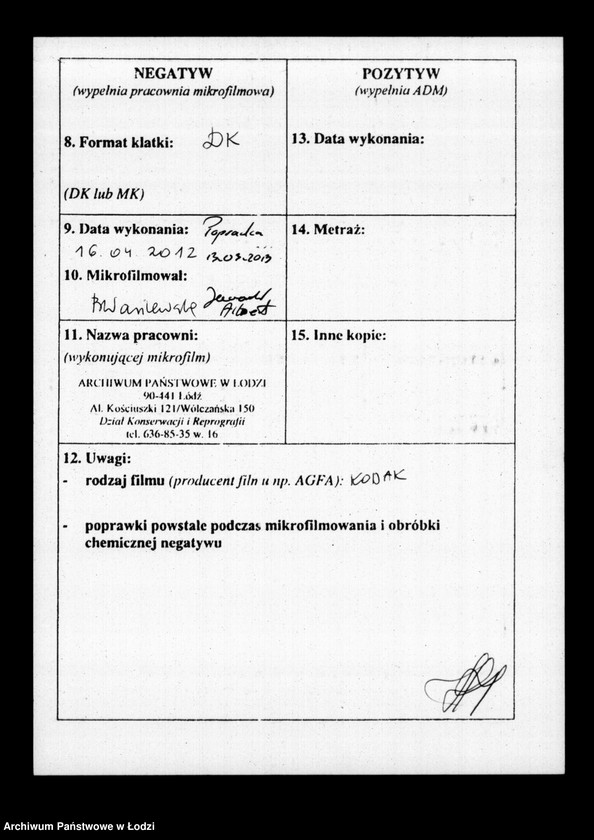 NEGATYW
(wypełnia pracownia mikrofilmowa)
8. Format klatki: DK
(DK lub MK)
9. Data wykonania: Poprawka
16.04.2012 13.03.2013
10. Mikrofilmował:
11. Nazwa pracowni:
(wykonującej mikrofilm)
ARCHIWUM PAŃSTWOWE W ŁODZI
90-441 Łódź
Al. Kościuszki 121/Wólczańska 150
Dział Konserwacji i Reprografii
tel. 636-85-35 w. 16
POZYTYW
(wypełnia ADM)
13. Data wykonania:
14. Metraż:
15. Inne kopie:
12. Uwagi:
- rodzaj filmu (producent filmu np. AGFA): KODAK
- poprawki powstałe podczas mikrofilmowania i obróbki
chemicznej negatywu
Archiwum Państwowe w Łodzi